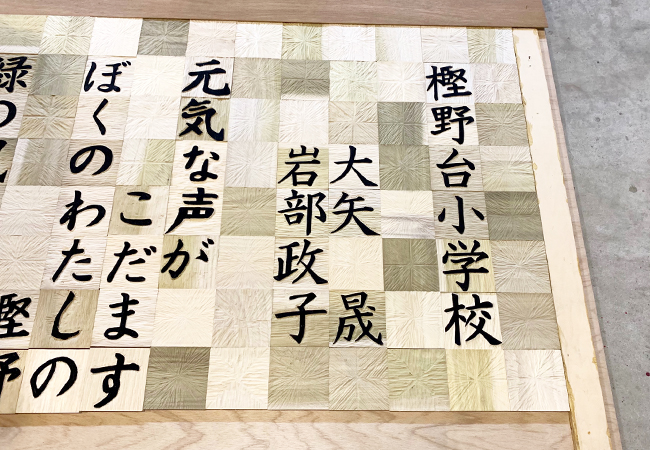 樫野台小学校
大矢 晟
岩部政子
元気な声が
こだます
ぼくのわたしの
緑の
樫野